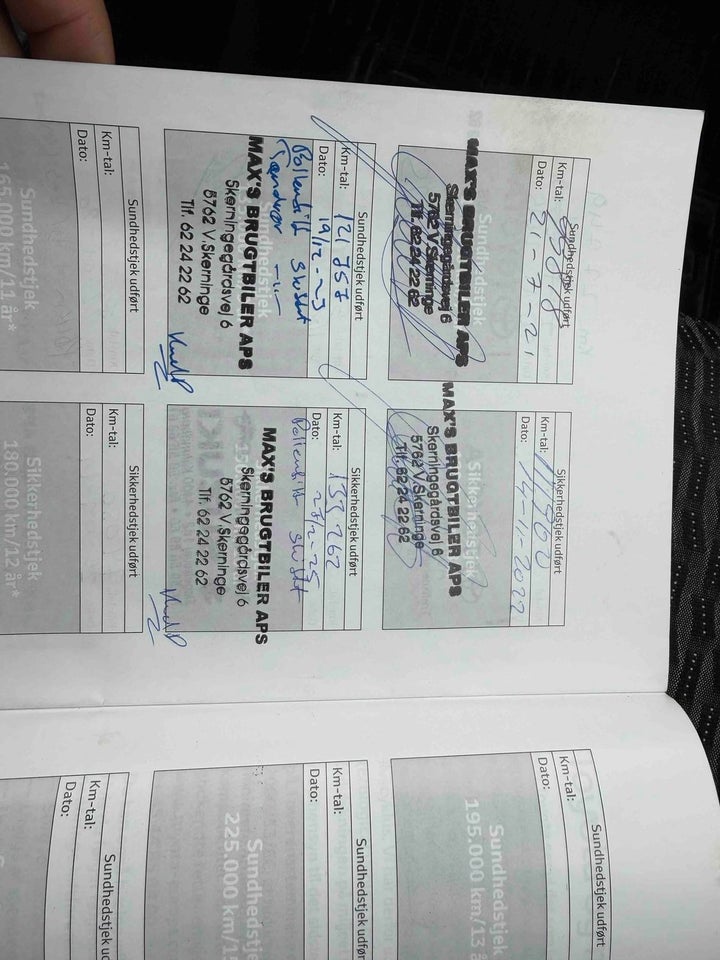 Sundhedstjek udført
Km-tal:
Dato: 21-7-21
MAX'S BRUGTBILER APS
Skerningegårdsvej 6
5762 V.Skerninge
Tlf. 62 24 22 62
Sikkerhedstjek udført
Km-tal:
Dato: 14-11-2022
MAX'S BRUGTBILER APS
Skerningegårdsvej 6
5762 V.Skerninge
Tlf. 62 24 22 62
Sundhedstjek udført
Km-tal: 121 757
Dato: 19/12-23
Pollenfilt skiftet
MAX'S BRUGTBILER APS
Skerningegårdsvej 6
5762 V.Skerninge
Tlf. 62 24 22 62
Sikkerhedstjek udført
Km-tal: 133,262
Dato: 27/2-25
Pollenfilt skiftet
MAX'S BRUGTBILER APS
Skerningegårdsvej 6
5762 V.Skerninge
Tlf. 62 24 22 62
Sundhedstjek udført
Km-tal:
Dato:
Sundhedstjek
165.000 km/11 år*
Sikkerhedstjek udført
Km-tal:
Dato:
Sikkerhedstjek
180.000 km/12 år*
Sundhedstjek udført
Km-tal:
Dato:
Sundhedstje
195.000 km/13 å
Sundhedstjek udført
Km-tal:
Dato:
Sundhedstje
225.000 km/1
Sundhedstjek ud
Km-tal:
Dato: